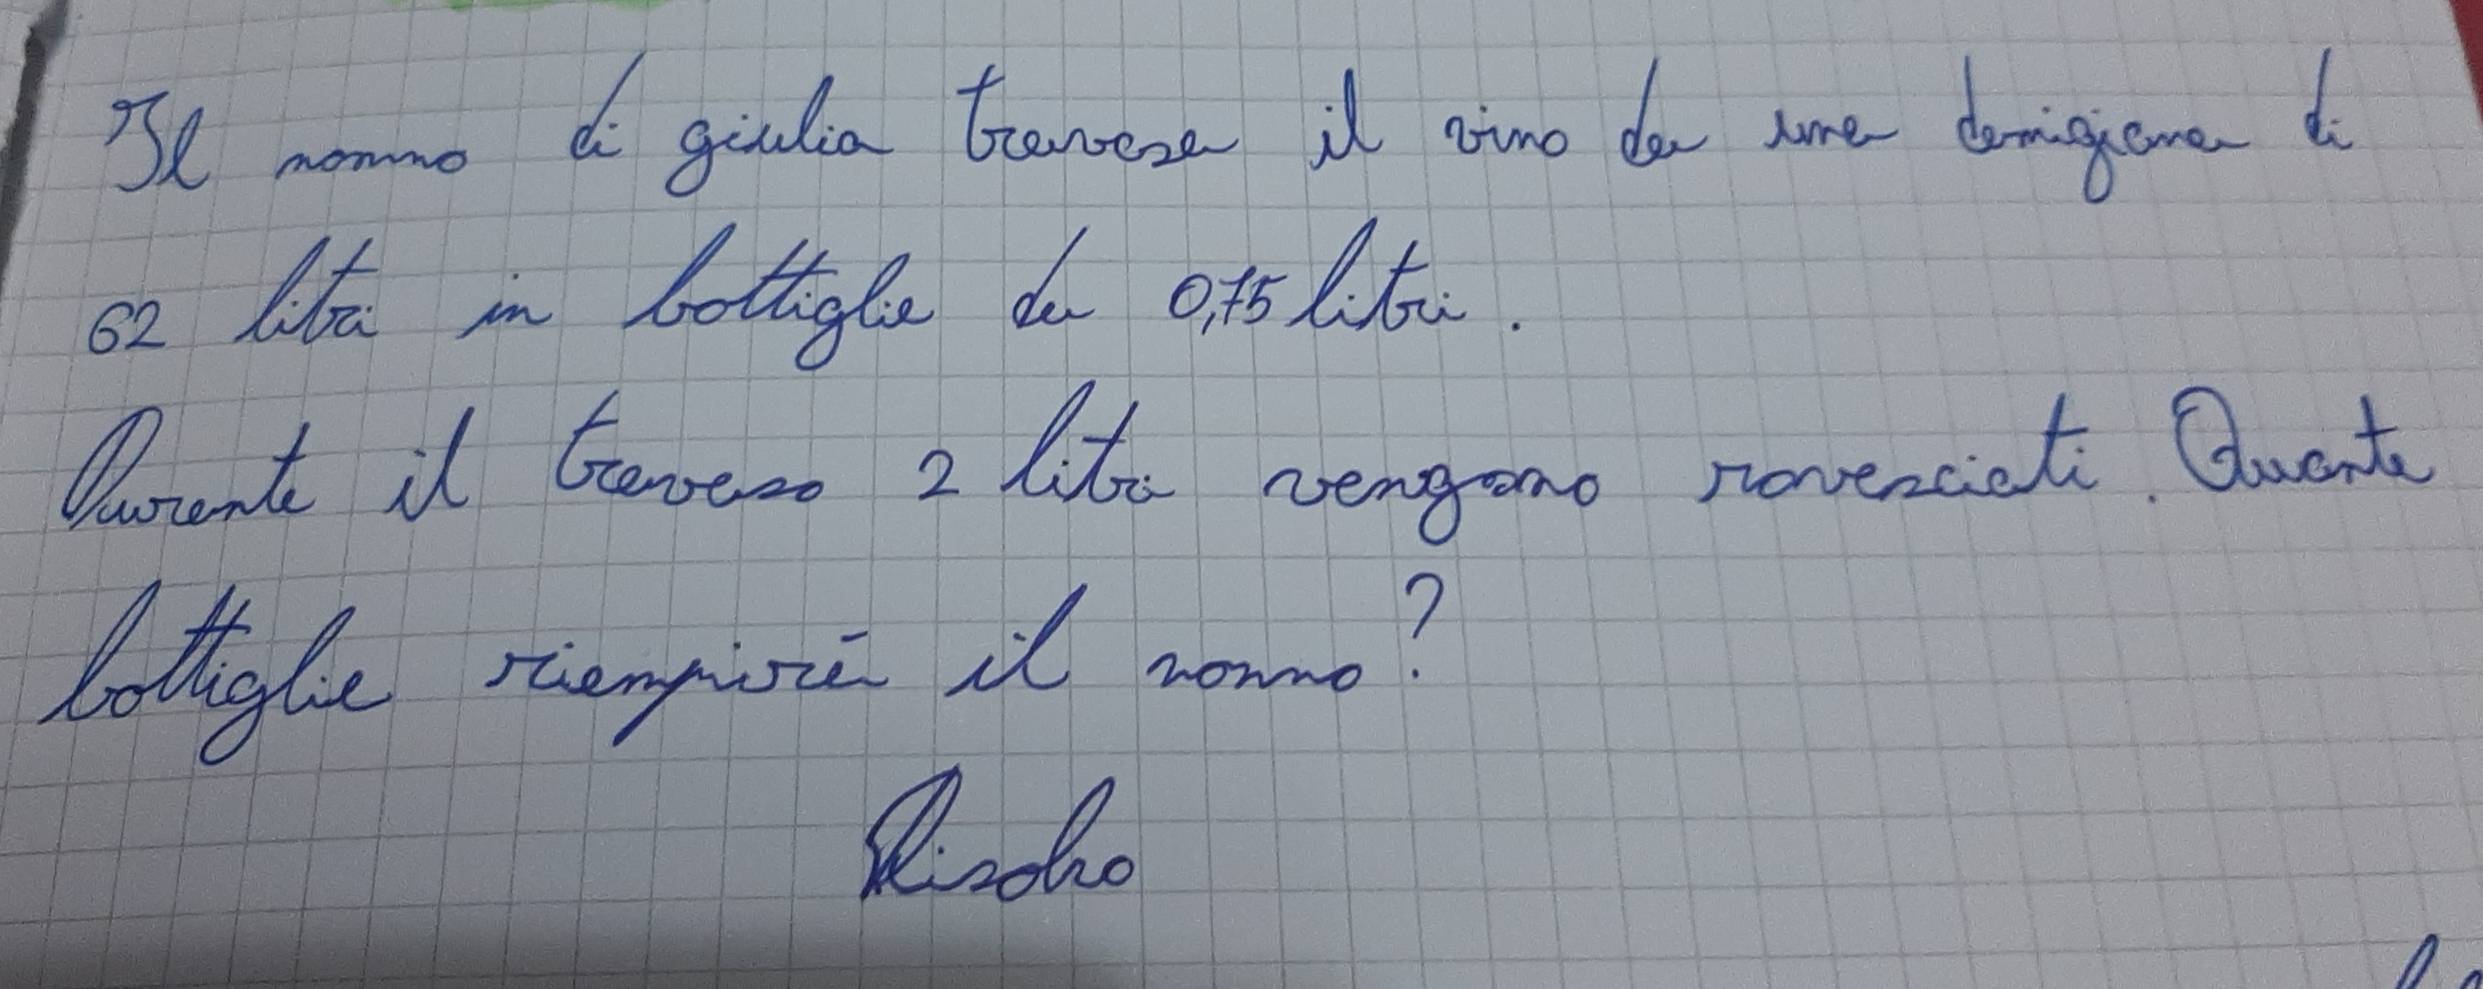 Il nonno di giulia travasa il vino da una damigiana di
62 litri in bottiglie da 0,75 litri.
Durante il travaso 2 litri vengono rovesciati. Quante
bottiglie riempirà il nonno?
Risolvo